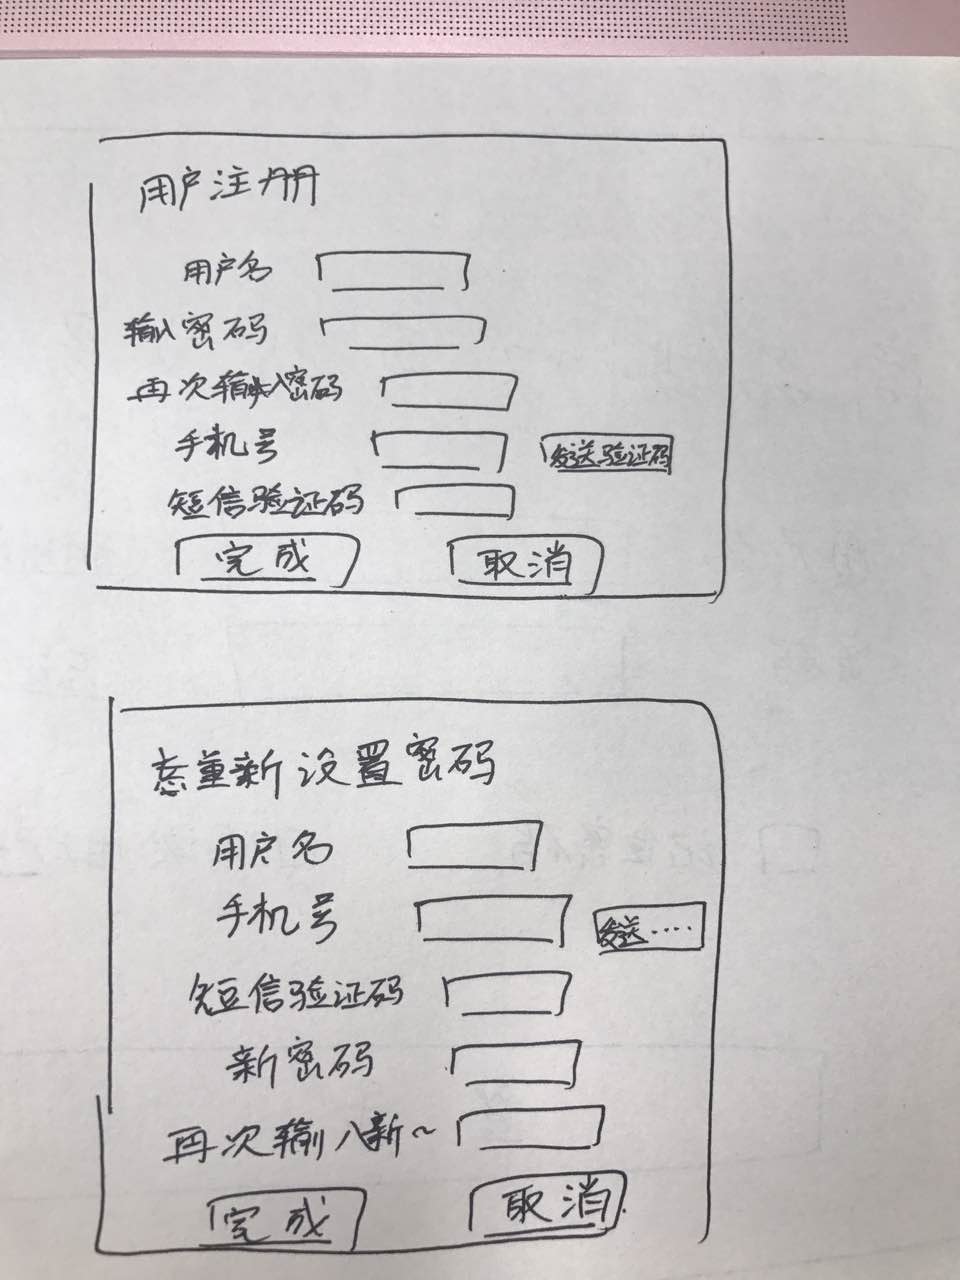 用户注册
用户名
输入密码
再次输入密码
手机号 发送验证码
短信验证码
完成 取消
重新设置密码
用户名
手机号 发送····
短信验证码
新密码
再次输入新~
完成 取消